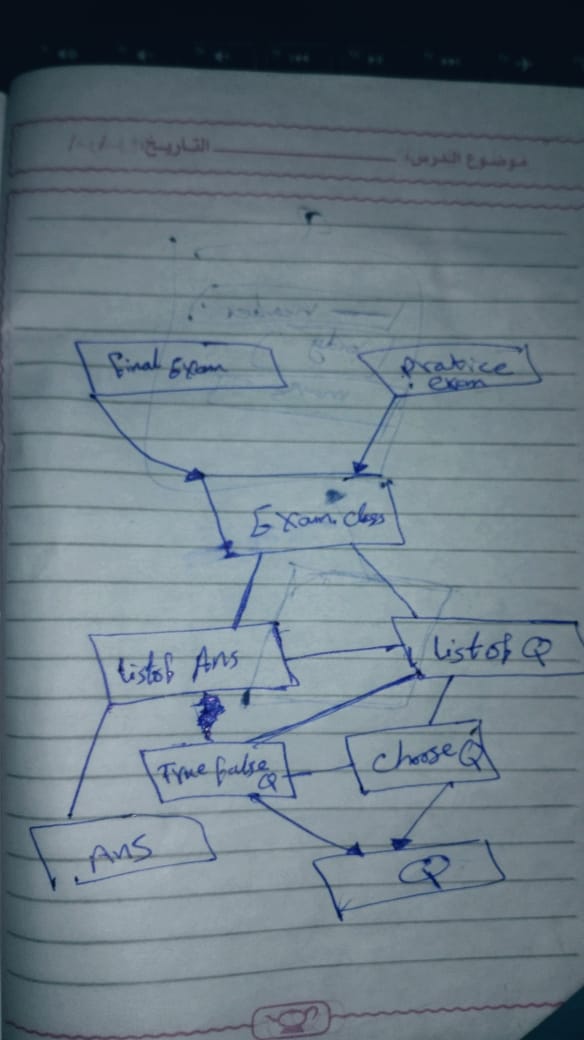 موضوع الدرس:
التاريخ:
Final Exam
pratice
exam
Exam.Class
list of Ans
list of Q
True false
Q
choose Q
Ans
Q